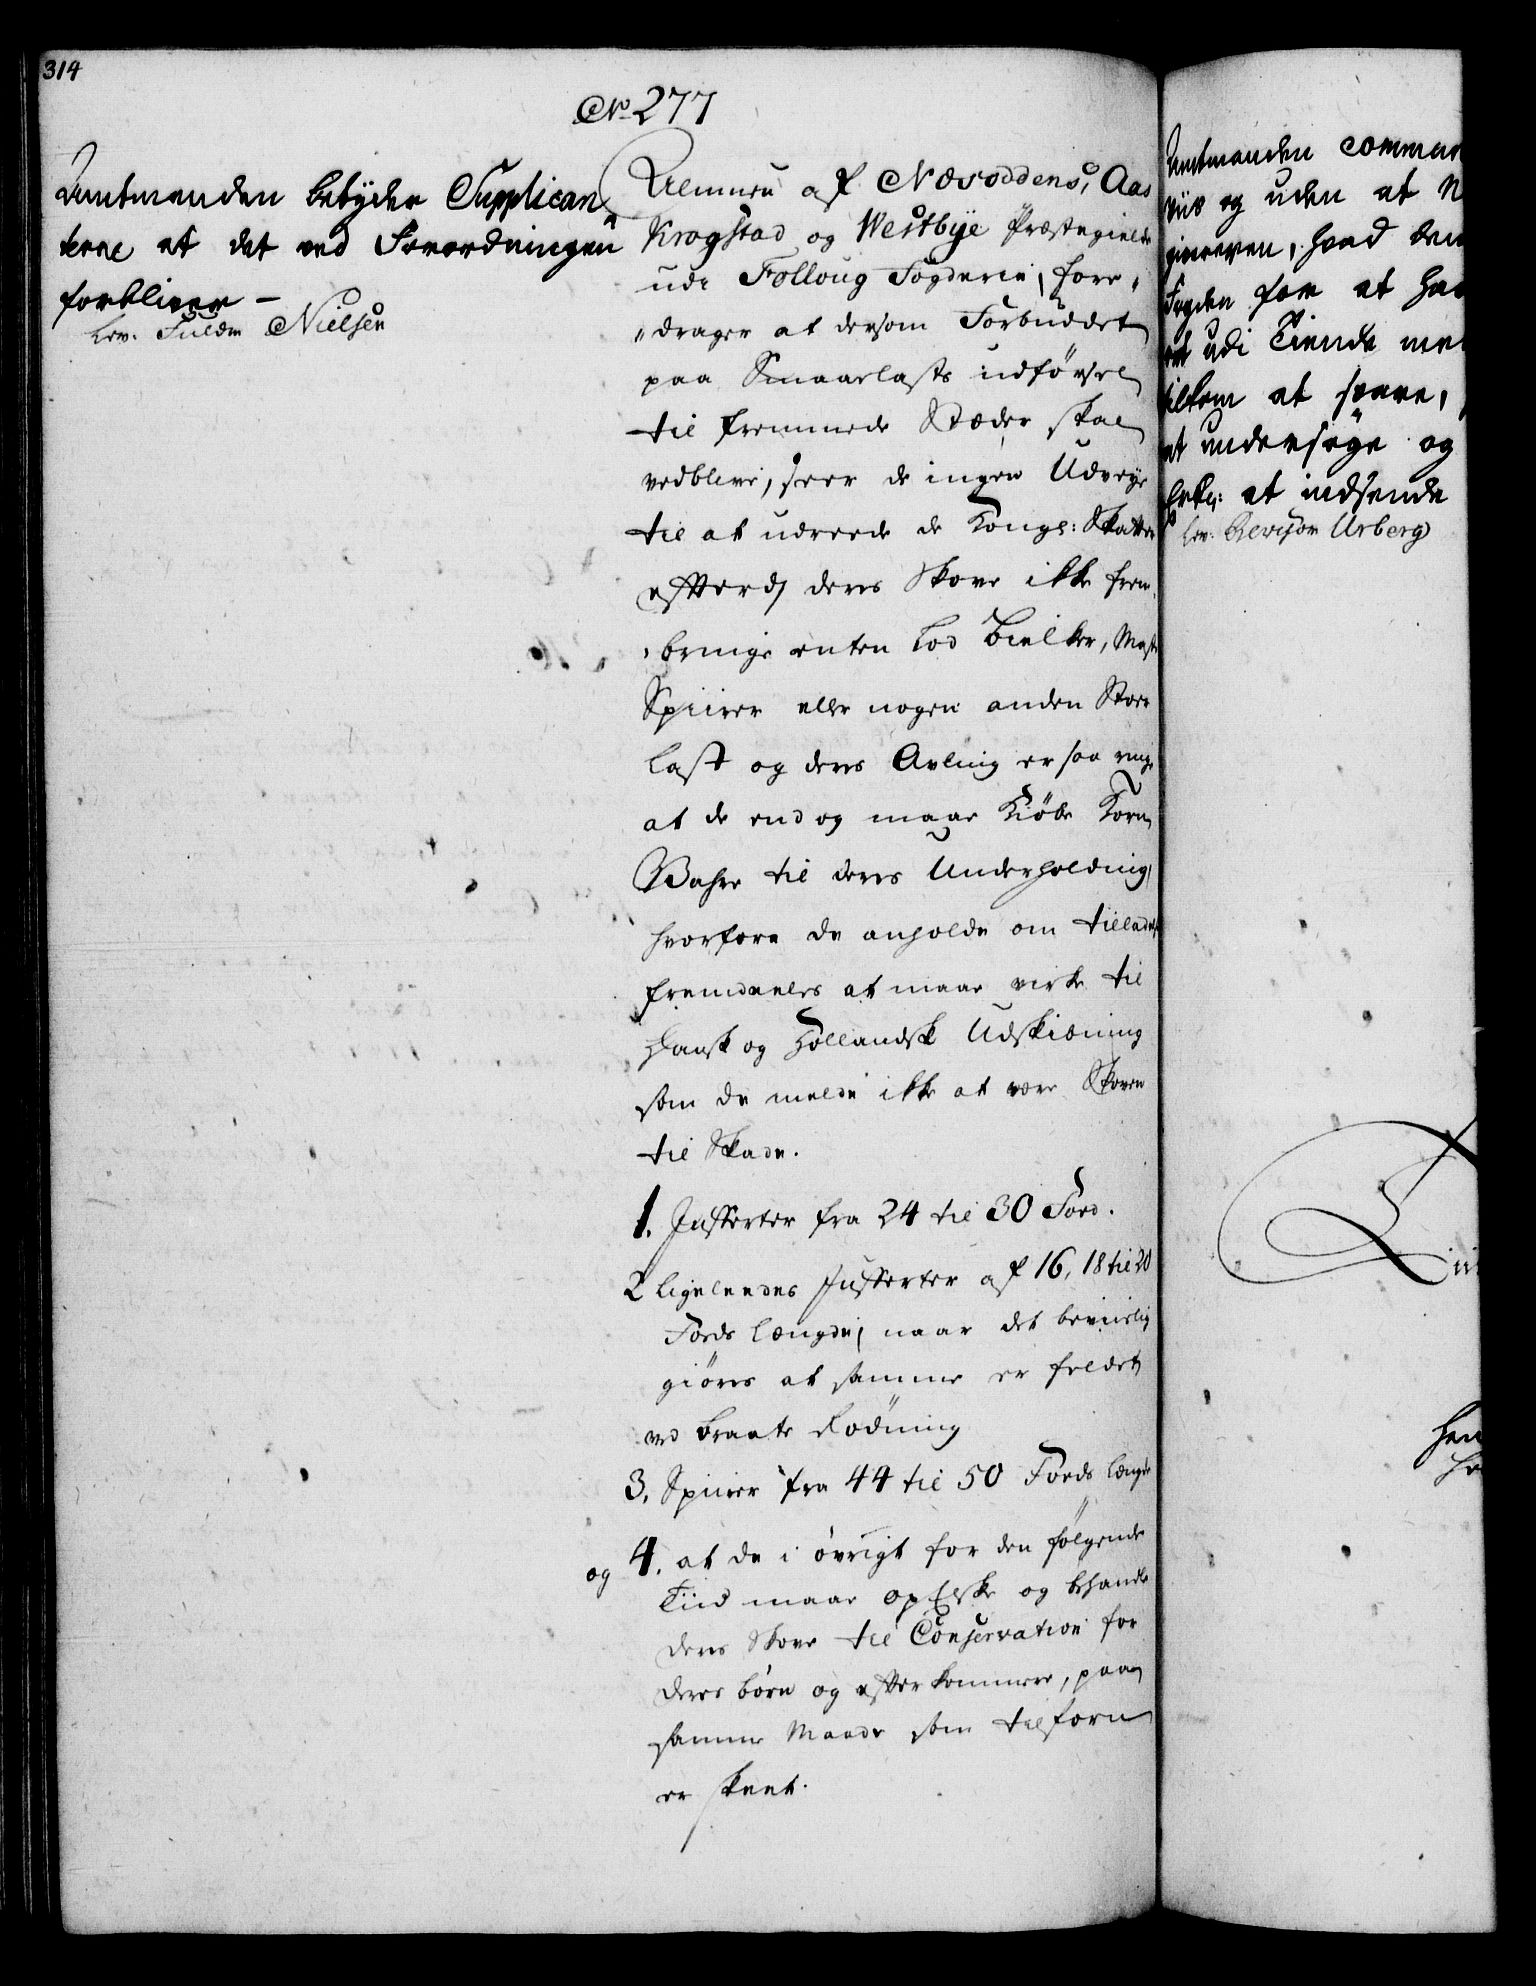 314
No 277
Amtmanden betyder Supplican
terne at det ved Forordningen
forbliver –
lev. Fuldm Nielsen
Almuen af Næsoddens, Aas
Kragstad og Westbye Præstegield
udi Folloug Fogderie, fore„
„drager at dersom Forbuddet
paa Smaaelasts udførsel
til fremmede Stæder skal
vedblive, seer de ingen Udveye
til at udreede de Kongl: Skatter
efterdj deres Skove ikke frem„
„bringe enten Lod Bielker, Mast
Spiirer eller nogen anden Stor
last og deres Avling er saa ringe
at de end og maae Kiøbe Korn
Vahre til deres Underholdning
hvorfore de anholde om tilladelse
fremdeeles at maae virke til
Dansk og Hollandsk Udskibning
som de melde ikke at være Skoven
til Skade.
1. Jufferter fra 24 til 30 Fod.
2 ligeleedes Jufferter af 16, 18 til 20
Fods længde, naar det beviislig
giøres at samme er feldet
ved braate Rødning
3. Spiirer fra 44 til 50 Fods længde
og 4. at de i øvrigt for den følgende
Tiid maae opElske og behandle
deres Skove til Conservation for
deres børn og efterkommere, paa
samme Maade som tilforn
er skeet.
Amtmanden commun
viis og uden at
giveren, hvad den
Fogden for at ha
udi Tiende
at svare,
at undersøge og
at indsende
lev. Revisor Urberg